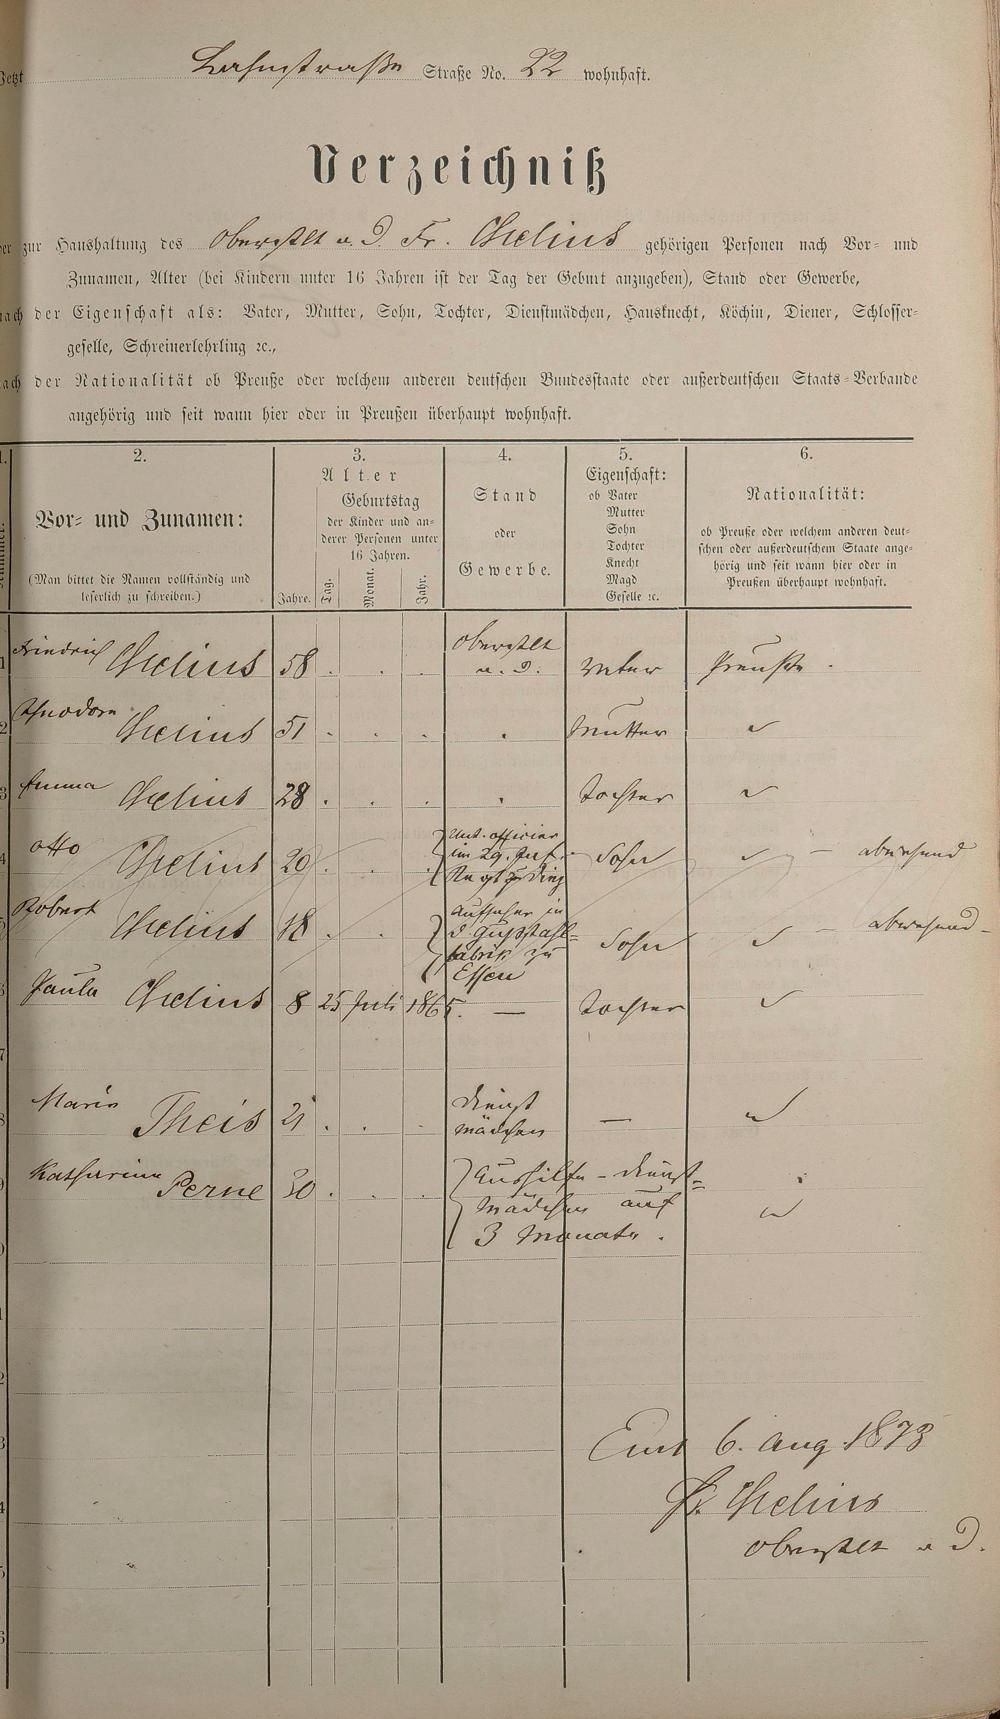 Jetzt Lahnstraße Straße No. 22 wohnhaft.
Verzeichniß
der zur Haushaltung des Oberstlt a. D. Fr. Chelius gehörigen Personen nach Vor- und
Zunamen, Alter (bei Kindern unter 16 Jahren ist der Tag der Geburt anzugeben), Stand oder Gewerbe,
nach der Eigenschaft als: Vater, Mutter, Sohn, Tochter, Dienstmädchen, Hausknecht, Köchin, Diener, Schlosser-
geselle, Schreinerlehrling ꝛc.,
nach der Nationalität ob Preuße oder welchem anderen deutschen Bundesstaate oder außerdeutschen Staats-Verbande
angehörig und seit wann hier oder in Preußen überhaupt wohnhaft.
1. 2. 3. 4. 5. 6.
Nummer.
Vor- und Zunamen:
(Man bittet die Namen vollständig und
leserlich zu schreiben.)
Alter
Geburtstag
der Kinder und an-
derer Personen unter
16 Jahren.
Jahre. Tag. Monat. Jahr.
Stand
oder
Gewerbe.
Eigenschaft:
ob Vater
Mutter
Sohn
Tochter
Knecht
Magd
Geselle ꝛc.
Nationalität:
ob Preuße oder welchem anderen deut-
schen oder außerdeutschem Staate ange-
hörig und seit wann hier oder in
Preußen überhaupt wohnhaft.
1 Friedrich Chelius 58 . . . Oberstlt a. D. Vater Preuße .
2 Theodore Chelius 51 . . . . Mutter
3 Emma Chelius 28 . . . . Tochter
4 Otto Chelius 20 . . . Unt. officier
im 29. Inf.
Regt zu Diez Sohn — abwesend
5 Robert Chelius 18 . . Aufseher in
d. Gußstahl-
fabrik zu
Essen Sohn — abwesend —
6 Paula Chelius 8 25 Juli 1865. — Tochter
7
8 Marie Theis 21 . . . Dienst
mädchen —
9 Katharine Perne 30 . . . Aushilfe-Dienst-
mädchen auf
3 Monate .
Ems 6. Aug. 1873
Fr. Chelius
Oberstlt a D.